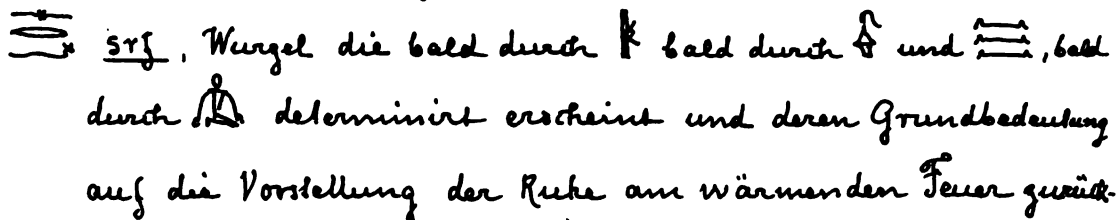 srf, Wurzel die bald durch bald durch und , bald
durch determinirt erscheint und deren Grundbedeutung
auf die Vorstellung der Ruhe am wärmenden Feuer zurück-